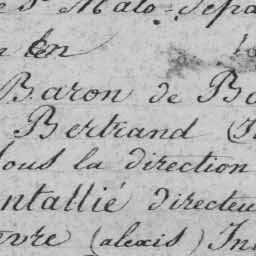 St Malo = Sépa
en
Baron de Bo
Bertrand (
sous la direction
ntallié directeu
vre (alexis) In